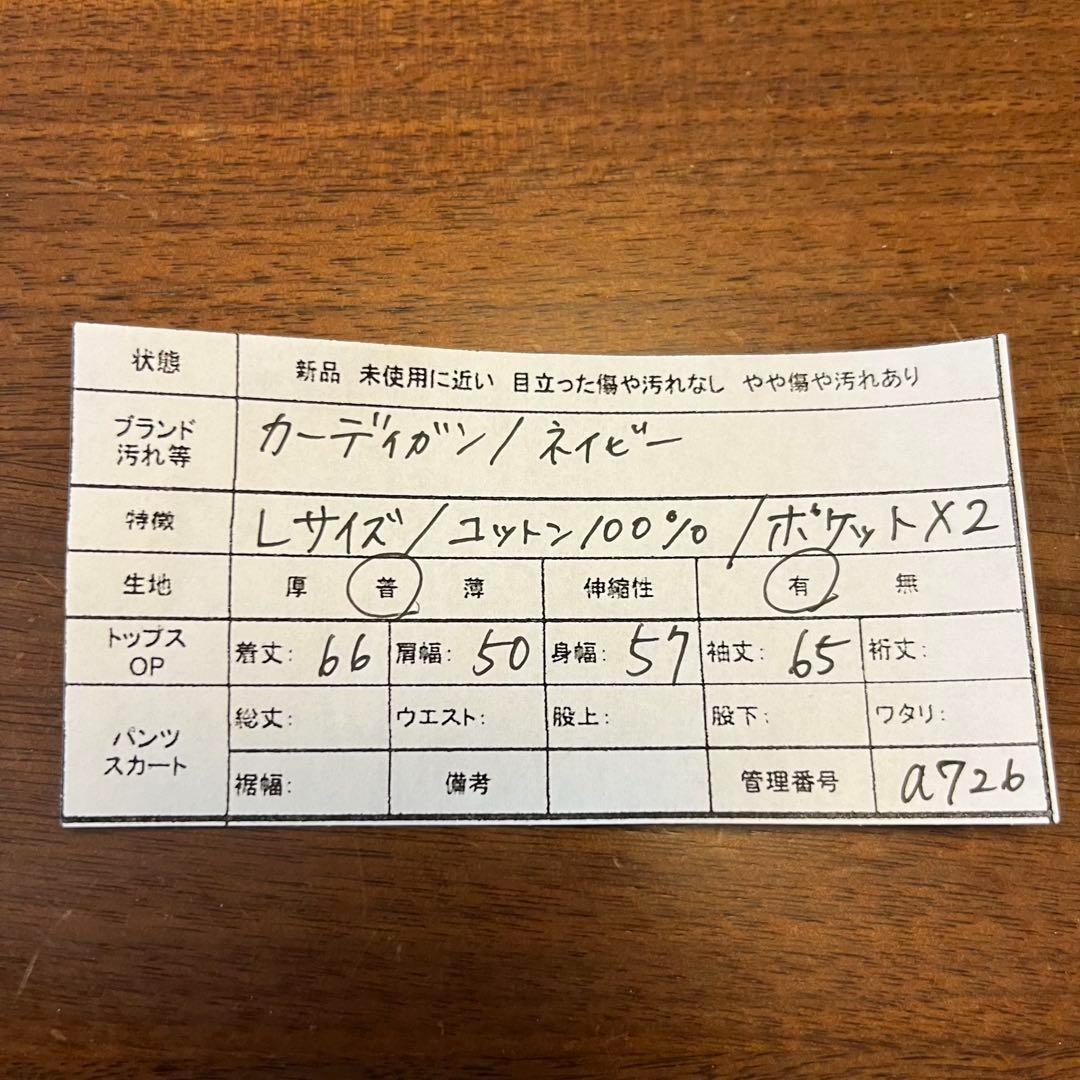 状態 新品 未使用に近い 目立った傷や汚れなし やや傷や汚れあり
ブランド
汚れ等 カーディガン/ネイビー
特徴 Lサイズ/コットン100%/ポケット×2
生地 厚 普 薄 伸縮性 有 無
トップス
OP 着丈: 66 肩幅: 50 身幅: 57 袖丈: 65 裄丈:
パンツ
スカート 総丈: ウエスト: 股上: 股下: ワタリ:
裾幅: 備考 管理番号 a726